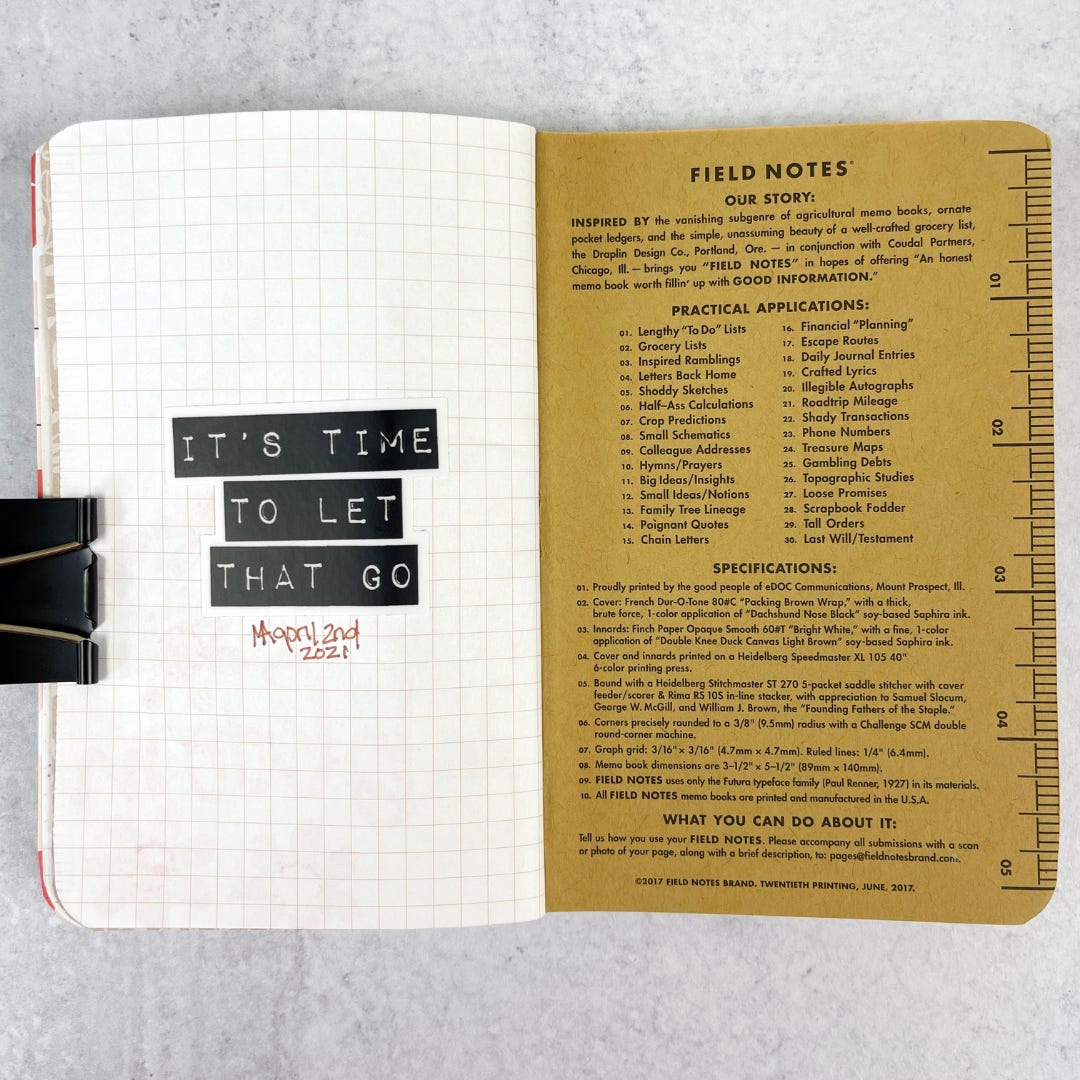 IT'S TIME
TO LET
THAT GO
April 2nd
2021
FIELD NOTES®
OUR STORY:
INSPIRED BY the vanishing subgenre of agricultural memo books, ornate
pocket ledgers, and the simple, unassuming beauty of a well-crafted grocery list,
the Draplin Design Co., Portland, Ore. — in conjunction with Coudal Partners,
Chicago, Ill. — brings you "FIELD NOTES" in hopes of offering "An honest
memo book worth fillin' up with GOOD INFORMATION."
PRACTICAL APPLICATIONS:
01. Lengthy "To Do" Lists
02. Grocery Lists
03. Inspired Ramblings
04. Letters Back Home
05. Shoddy Sketches
06. Half–Ass Calculations
07. Crop Predictions
08. Small Schematics
09. Colleague Addresses
10. Hymns/Prayers
11. Big Ideas/Insights
12. Small Ideas/Notions
13. Family Tree Lineage
14. Poignant Quotes
15. Chain Letters
16. Financial "Planning"
17. Escape Routes
18. Daily Journal Entries
19. Crafted Lyrics
20. Illegible Autographs
21. Roadtrip Mileage
22. Shady Transactions
23. Phone Numbers
24. Treasure Maps
25. Gambling Debts
26. Topographic Studies
27. Loose Promises
28. Scrapbook Fodder
29. Tall Orders
30. Last Will/Testament
SPECIFICATIONS:
01. Proudly printed by the good people of eDOC Communications, Mount Prospect, Ill.
02. Cover: French Dur-O-Tone 80#C "Packing Brown Wrap," with a thick,
brute force, 1-color application of "Dachshund Nose Black" soy-based Saphira ink.
03. Innards: Finch Paper Opaque Smooth 60#T "Bright White," with a fine, 1-color
application of "Double Knee Duck Canvas Light Brown" soy-based Saphira ink.
04. Cover and innards printed on a Heidelberg Speedmaster XL 105 40"
6-color printing press.
05. Bound with a Heidelberg Stitchmaster ST 270 5-pocket saddle stitcher with cover
feeder/scorer & Rima RS 10S in-line stacker, with appreciation to Samuel Slocum,
George W. McGill, and William J. Brown, the "Founding Fathers of the Staple."
06. Corners precisely rounded to a 3/8" (9.5mm) radius with a Challenge SCM double
round-corner machine.
07. Graph grid: 3/16" × 3/16" (4.7mm × 4.7mm). Ruled lines: 1/4" (6.4mm).
08. Memo book dimensions are 3–1/2" × 5–1/2" (89mm × 140mm).
09. FIELD NOTES uses only the Futura typeface family (Paul Renner, 1927) in its materials.
10. All FIELD NOTES memo books are printed and manufactured in the U.S.A.
WHAT YOU CAN DO ABOUT IT:
Tell us how you use your FIELD NOTES. Please accompany all submissions with a scan
or photo of your page, along with a brief description, to: pages@fieldnotesbrand.com.
©2017 FIELD NOTES BRAND. TWENTIETH PRINTING, JUNE, 2017.
01
02
03
04
05